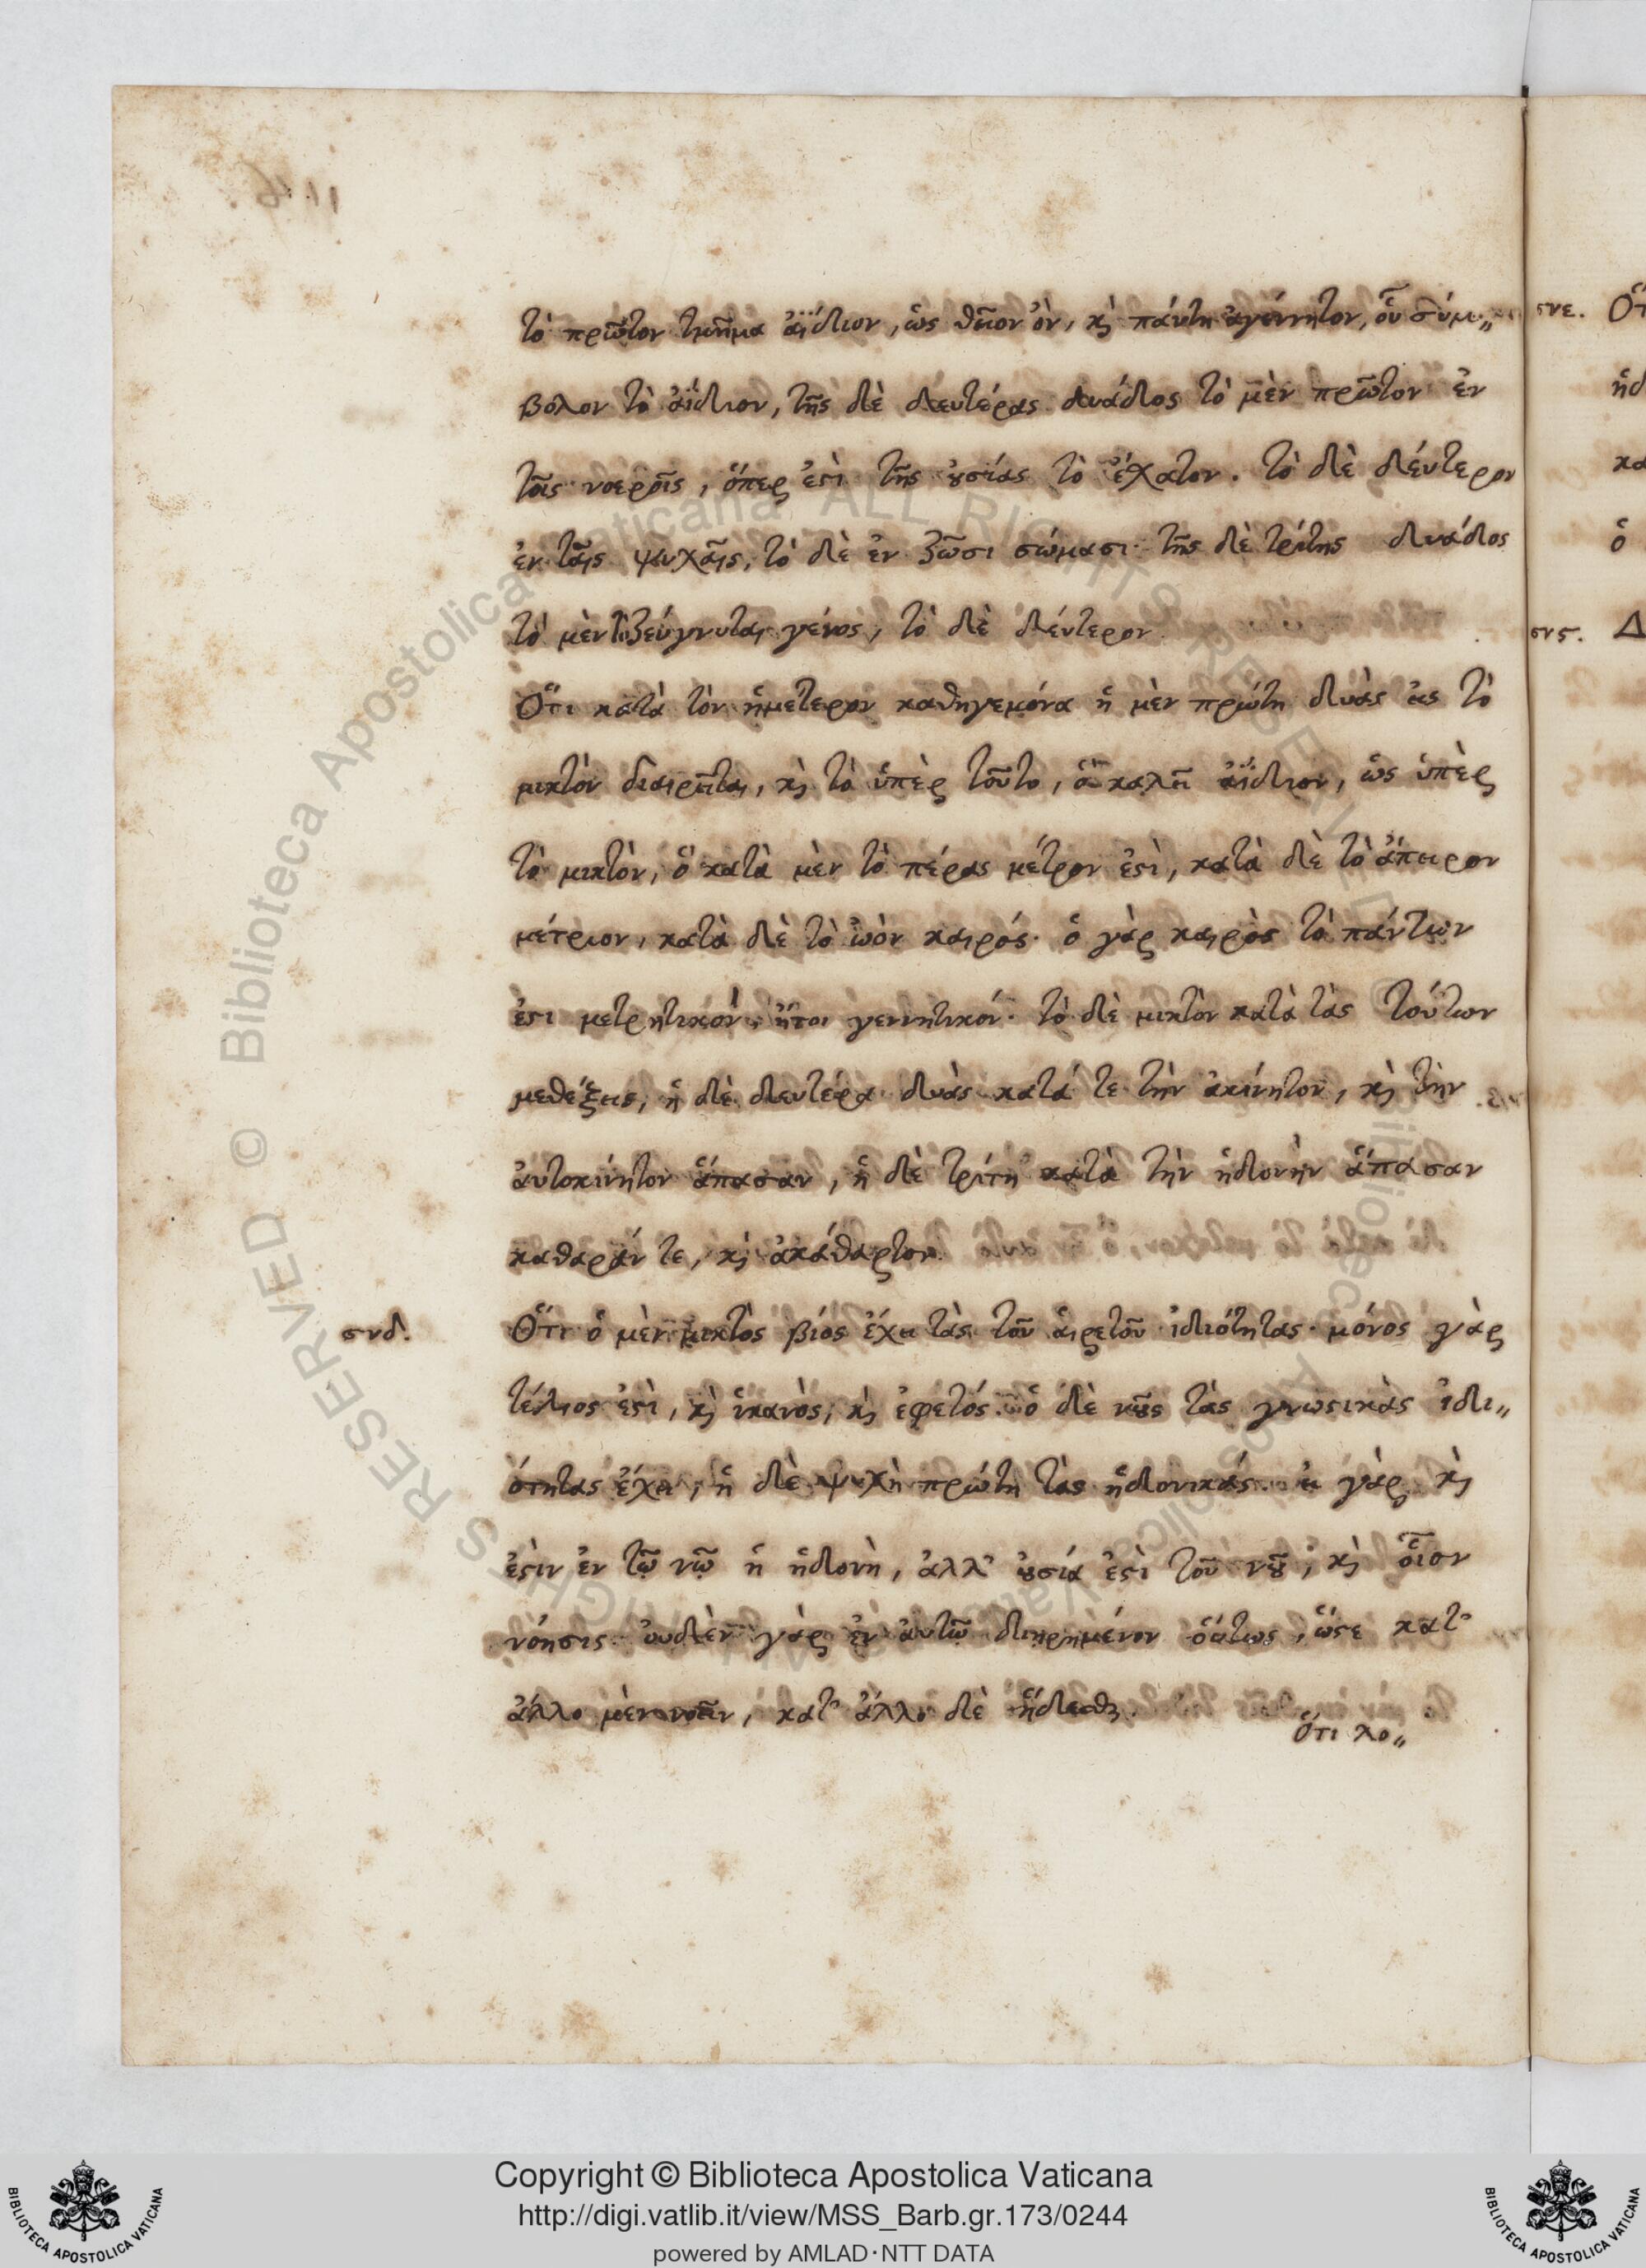 τὸ πρῶτον τμῆμα ἀΐδιον, ὡς θεῖον ὂν, κ̀ πάντη ἀγέννητον, οὗ σύμ„
βολον τὸ ἀΐδιον, τῆς δὲ δευτέρας δυάδος τὸ μὲν πρῶτον ἐν
τοῖς νοεροῖς, ὅπερ ἐϛὶ τῆς ȣ̓σίας τὸ ἔχατον. τὸ δὲ δεύτερον
ἐν ταῖς ψυχαῖς, τὸ δὲ ἐν ζῶσι σώμασι· τῆς δὲ τρίτης δυάδος
τὸ μὲν ζεύγνυται γένος, τὸ δὲ δεύτερον
Ὅτι κατὰ τὸν ἡμέτερον καθηγεμόνα ἡ μὲν πρώτη δυὰς εἰς τὸ
μικτὸν διαιρεῖται, κ̀ τὸ ὑπὲρ τοῦτο, ὃ καλεῖ ἀΐδιον, ὡς ὑπὲρ
τὸ μικτὸν, ὃ κατὰ μὲν τὸ πέρας μέτρον ἐϛὶ, κατὰ δὲ τὸ ἄπειρον
μέτριον, κατὰ δὲ τὸ ὠὸν καιρός· ὁ γὰρ καιρὸς τὸ πάντων
ἐϛι μετρητικόν, ἤτοι γεννητικόν· τὸ δὲ μικτὸν κατὰ τὰς τούτων
μεθέξεις, ἡ δὲ δευτέρα δυὰς κατά τε τὴν ἀκίνητον, κ̀ τὴν
ἀυτοκίνητον ἅπασαν, ἡ δὲ τρίτη κατὰ τὴν ἡδονὴν ἅπασαν
καθαράν τε, κ̀ ἀκάθαρτον
σνδ. Ὅτι ὁ μὲν μικτὸς βίος ἔχει τὰς τοῦ ἁιρετοῦ ἰδιότητας· μόνος γὰρ
τέλειος ἐϛὶ, κ̀ ἱκανὸς, κ̀ ἐφετός. ὁ δὲ νȣ͂ς τὰς γνωϛικὰς ἰδι„
ότητας ἔχει, ἡ δὲ ψυχὴ πρώτη τὰς ἡδονικάς. εἰ γὰρ κ̀
ἐϛὶν ἐν τῷ νῷ ἡ ἡδονὴ, ἀλλ' ȣ̓σία ἐϛὶ τοῦ νȣ͂, κ̀ οἷον
νόησις· ὀυδὲν γὰρ ἐν ἀυτῷ διῃρημένον ὅυτως, ὥϛε κατ'
ἄλλο μὲν νοεῖν, κατ' ἄλλο δὲ ἥδεσθαι.
Ὅτι λο„
σνε. Ὅτ
ἡδ
κα
ὁ
σνϛ. Δ
Copyright © Biblioteca Apostolica Vaticana
http://digi.vatlib.it/view/MSS_Barb.gr.173/0244
powered by AMLAD·NTT DATA
BIBLIOTECA APOSTOLICA VATICANA
BIBLIOTECA APOSTOLICA VATICANA